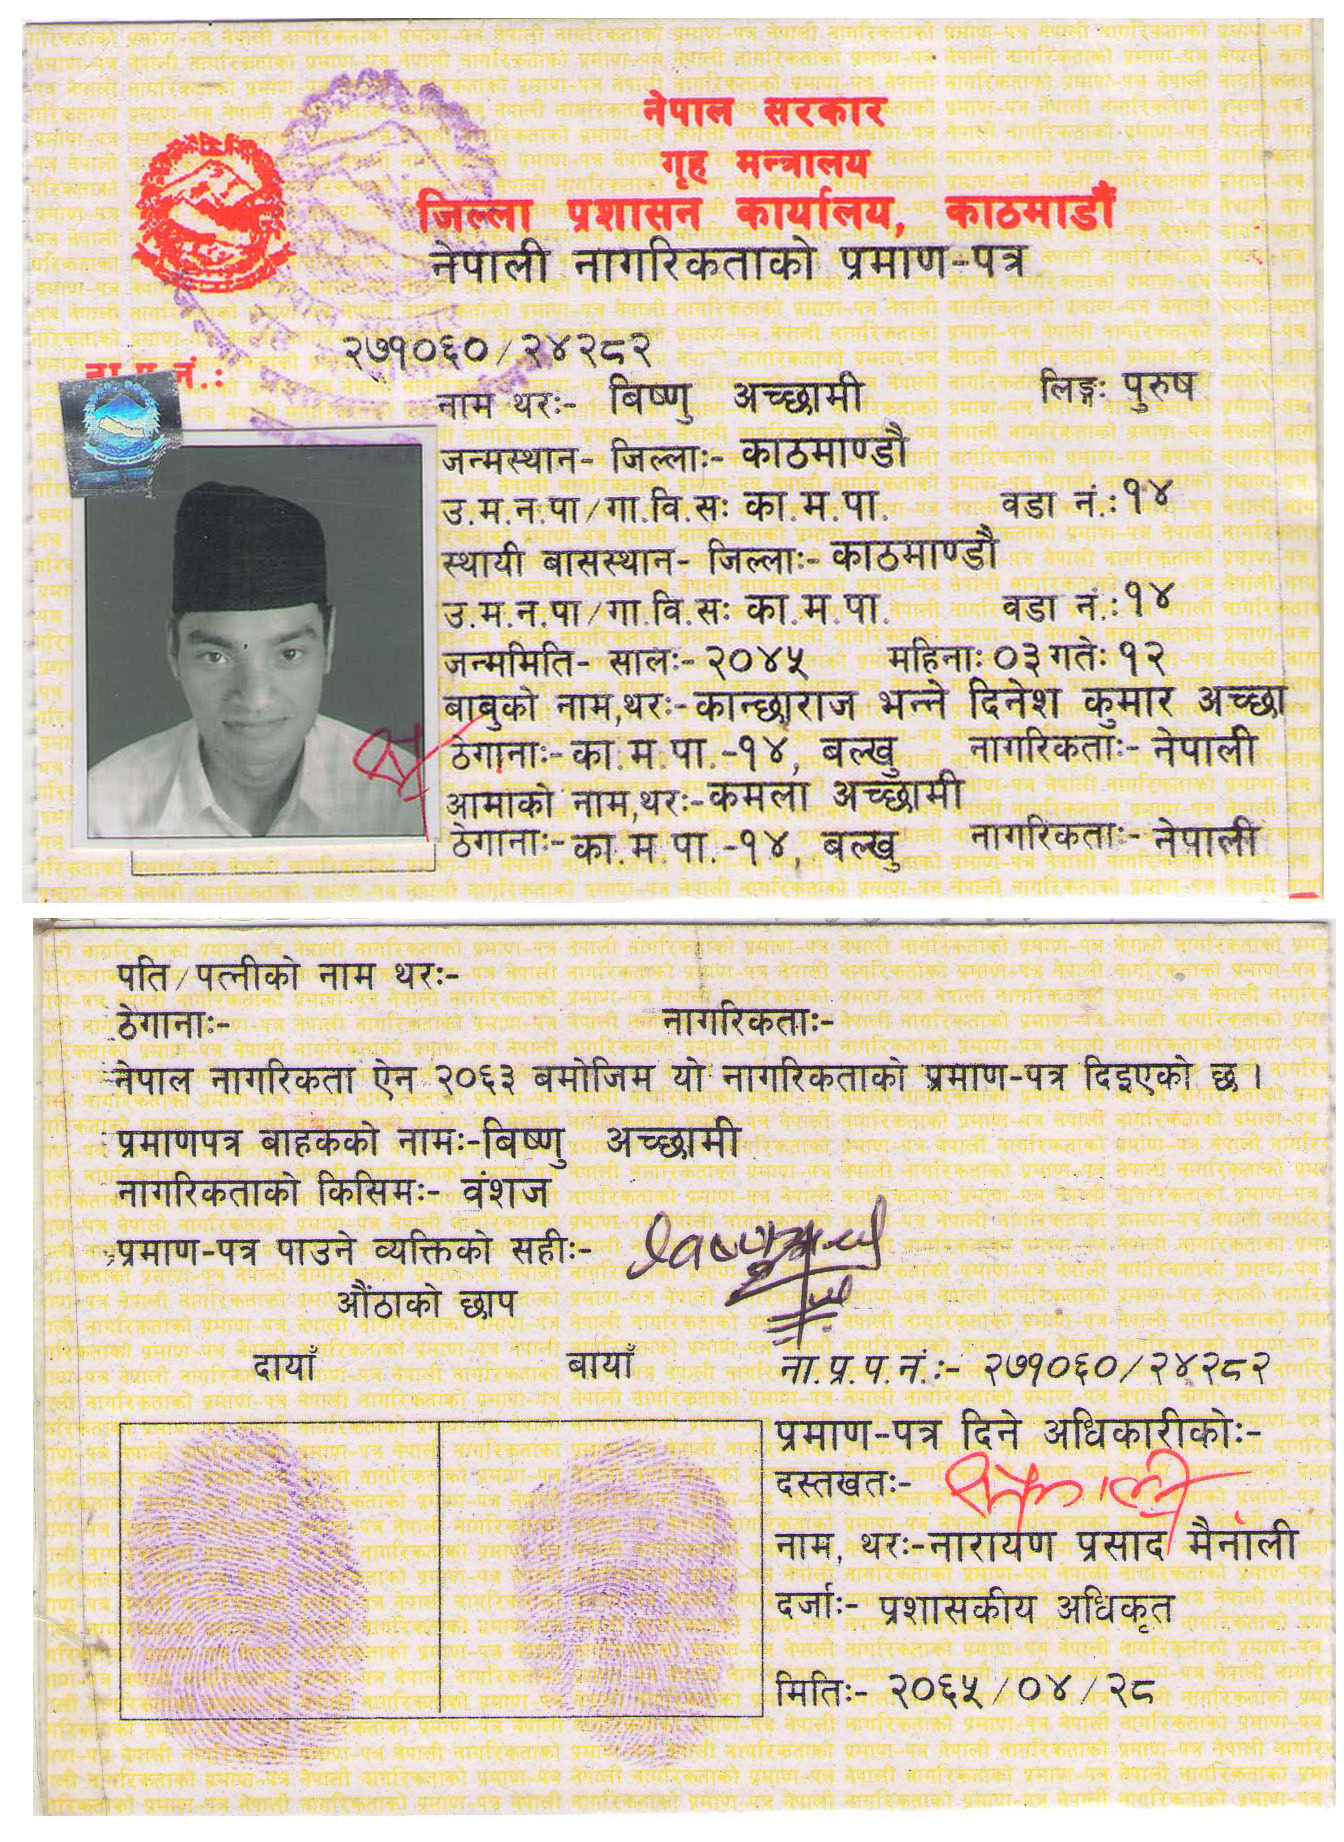 नेपाल सरकार
गृह मन्त्रालय
जिल्ला प्रशासन कार्यालय, काठमाडौं
नेपाली नागरिकताको प्रमाण-पत्र
ना.प्र.नं.: २७१०६०/२४२८२
नाम थरः- बिष्णु अच्छामी लिङ्गः पुरुष
जन्मस्थान- जिल्लाः- काठमाण्डौ
उ.म.न.पा/गा.वि.सः का.म.पा. वडा नं.: १४
स्थायी बासस्थान- जिल्लाः- काठमाण्डौ
उ.म.न.पा/गा.वि.सः का.म.पा. वडा नं.: १४
जन्ममिति- सालः- २०४५ महिनाः ०३ गतेः १२
बाबुको नाम,थरः- कान्छाराज भन्ने दिनेश कुमार अच्छा
ठेगानाः- का.म.पा.-१४, बल्खु नागरिकताः- नेपाली
आमाको नाम,थरः- कमला अच्छामी
ठेगानाः- का.म.पा.-१४, बल्खु नागरिकताः- नेपाली
पति/पत्नीको नाम थरः-
ठेगानाः- नागरिकताः-
नेपाल नागरिकता ऐन २०६३ बमोजिम यो नागरिकताको प्रमाण-पत्र दिइएको छ।
प्रमाणपत्र बाहकको नामः- बिष्णु अच्छामी
नागरिकताको किसिमः- वंशज
प्रमाण-पत्र पाउने व्यक्तिको सहीः-
औंठाको छाप
दायाँ बायाँ
ना.प्र.प.नं.:- २७१०६०/२४२८२
प्रमाण-पत्र दिने अधिकारीकोः-
दस्तखतः-
नाम, थरः- नारायण प्रसाद मैनाली
दर्जाः- प्रशासकीय अधिकृत
मितिः- २०६५/०४/२८